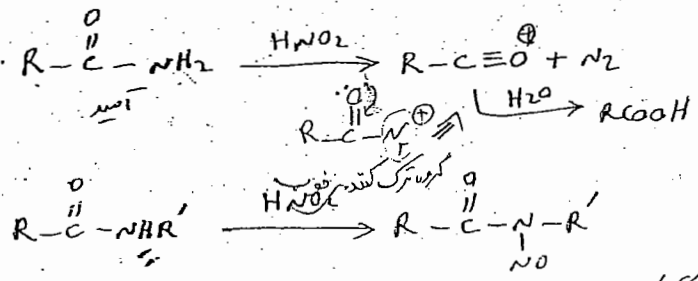 R-C(=O)-NH2 →(HNO2) R-C≡O⊕ + N2
آمید
→(H2O) RCOOH
R-C(=O)-N2⊕
گروه ترک کننده خوب
R-C(=O)-NHR' →(HNO2) R-C(=O)-N(NO)-R'